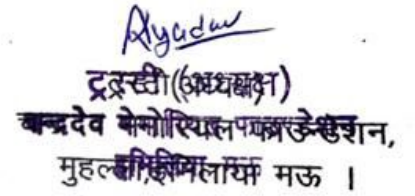 Ayadav
ट्रस्टी (अध्यक्ष)
चन्द्रदेव मेमोरियल फाउन्डेशन,
मुहल्ला, मऊ ।